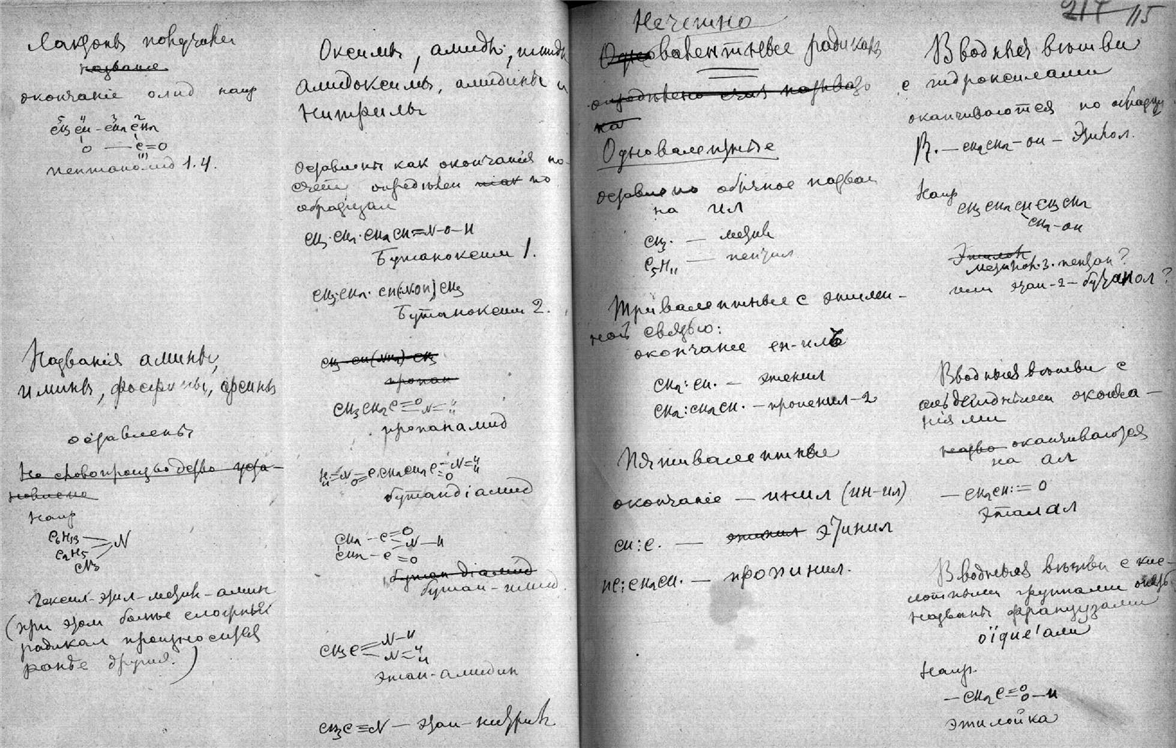 Лактоны получают
название
окончаніе олид напр
5 4 3 2
CH3 CH - CH2 CH2
O — C=O
(1)
пентанолид 1.4.
Названія амины,
имины, фосфины, арсины
оставлены
На словопроизводство уста-
новлено
Напр
C6H13
C2H5 N
CH3
Гексил-этил-метил-амин
(при этом более сложный
радикал произносится
ранее других.)
Оксимы, амиды, имиды
амидоксимы, амидины и
нитрилы
оставлены как окончанія но
счет определен по
образцам
CH3·CH2·CH2CH=N-O-H
Бутаноксим 1.
CH3·CH2·C(NOH)CH3
Бутаноксим 2.
пропан
CH3CH2C=O N=H H
пропанамид
бутандіамид
CH2 - C=O
N - H
CH2 - C=O
бутан діамид
бутан-имид
CH3C N-H N=H H
этан-амидин
CH3C≡N — этан-нитрил
217 115
Нечетно
Одновалентные радикалы
Одновалентные
оставлено обычное назван
на ил
CH3· — метил
C5H11 — пентил
Тривалентные с этилен-
ной связью:
окончаніе ен-ил
CH2:CH· — этенил
CH2:CH2CH· — пропенил-2
Пятивалентные
окончаніе — инил (ин-ил)
CH:C· — этинил
HC:CH2CH· — пропинил.
Вводныя вѣтви
с гидроксилами
оканчиваются по образцу
R. — CH2CH2-OH — Этилол.
Напр
CH3CH2CHCH2CH3
CH2-OH
Этилол
Метилол.3.пентан?
или этан-2-бутанол?
Вводныя вѣтви с
альдегидными оконча-
ніями
оканчиваются
на ал
— CH2CH:=O
Этилал
Вводныя вѣтви с кис-
лотными группами
названы французами
oïque'ами
Напр.
— CH2C=O O-H
этилойка